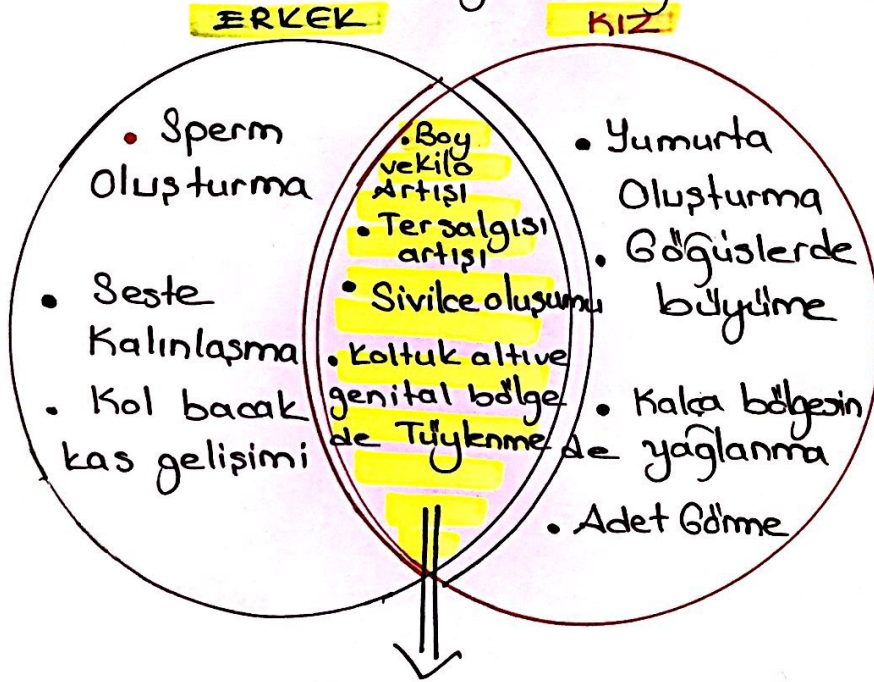 ERKEK
KIZ
• Sperm
Oluşturma
• Seste
Kalınlaşma
• Kol bacak
kas gelişimi
• Boy
ve kilo
Artışı
• Ter salgısı
artışı
• Sivilce oluşumu
• Koltuk altı ve
genital bölge
de Tüylenme
• Yumurta
Oluşturma
• Göğüslerde
büyüme
• Kalça bölgesin
de yağlanma
• Adet Görme